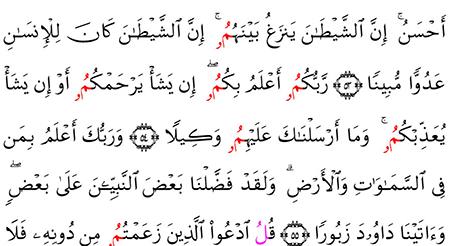 أَحْسَنُ ۚ إِنَّ ٱلشَّيْطَـٰنَ يَنزَغُ بَيْنَهُمُۥ ۚ إِنَّ ٱلشَّيْطَـٰنَ كَانَ لِلْإِنسَـٰنِ
عَدُوًّا مُّبِينًا ۝٥٣ رَّبُّكُمُۥ أَعْلَمُ بِكُمُۥ ۖ إِن يَشَأْ يَرْحَمْكُمُۥ أَوْ إِن يَشَأْ
يُعَذِّبْكُمُۥ ۚ وَمَا أَرْسَلْنَـٰكَ عَلَيْهِمُۥ وَكِيلًا ۝٥٤ وَرَبُّكَ أَعْلَمُ بِمَن
فِى ٱلسَّمَـٰوَٰتِ وَٱلْأَرْضِ ۗ وَلَقَدْ فَضَّلْنَا بَعْضَ ٱلنَّبِيِّـۧنَ عَلَىٰ بَعْضٍ ۖ
وَءَاتَيْنَا دَاوُۥدَ زَبُورًا ۝٥٥ قُلُ ٱدْعُوا۟ ٱلَّذِينَ زَعَمْتُمُۥ مِن دُونِهِۦ فَلَا